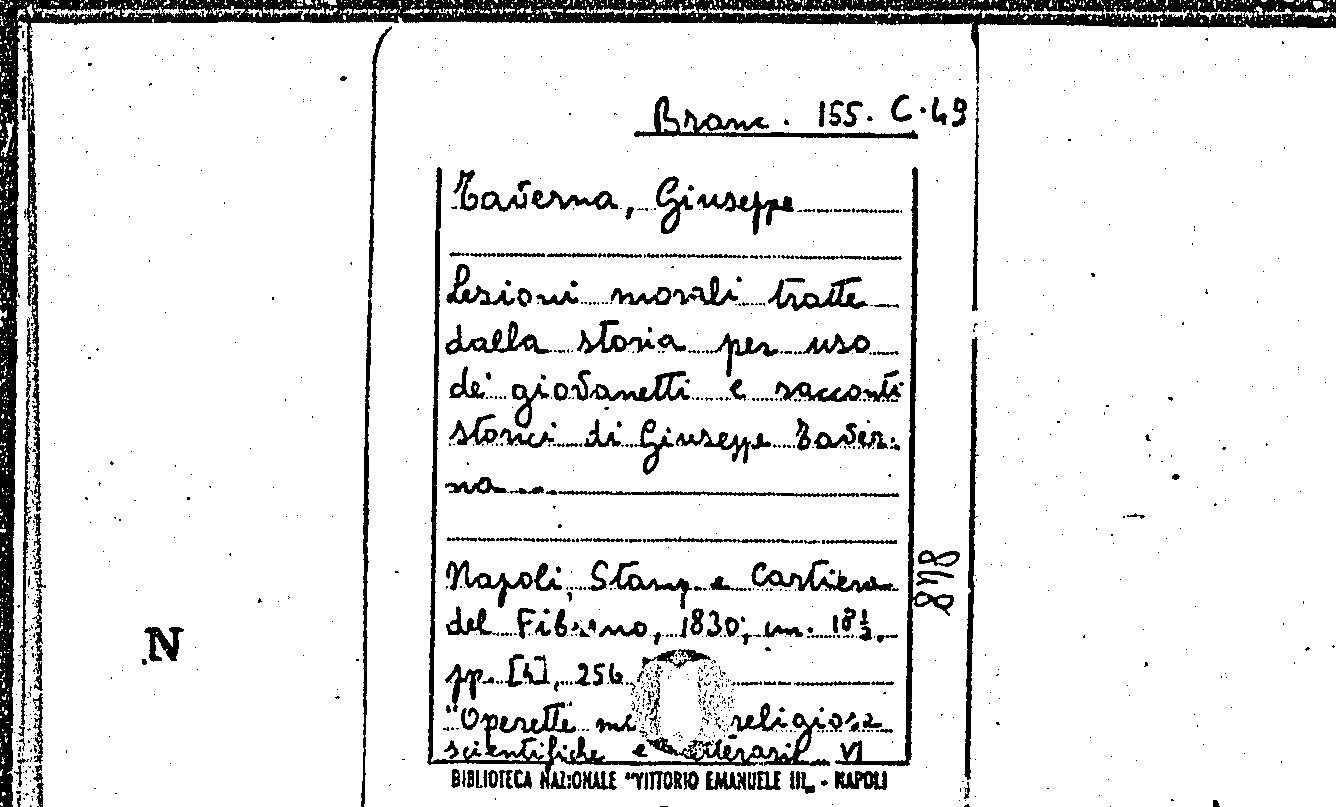 Branc. 155. C. 49
Taverna, Giuseppe
Lezioni morali tratte
dalla storia per uso
de' giovanetti e racconti
storici di Giuseppe Taver-
na...
Napoli, Stamp. e Cartiera
del Fibreno, 1830; cm. 18½,
pp. [4], 256
"Operette religiose
scientifiche e letterarie VI
BIBLIOTECA NAZIONALE "VITTORIO EMANUELE III" - NAPOLI
878
N